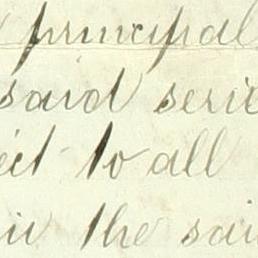 principal
said serie
ect to all
in the sai